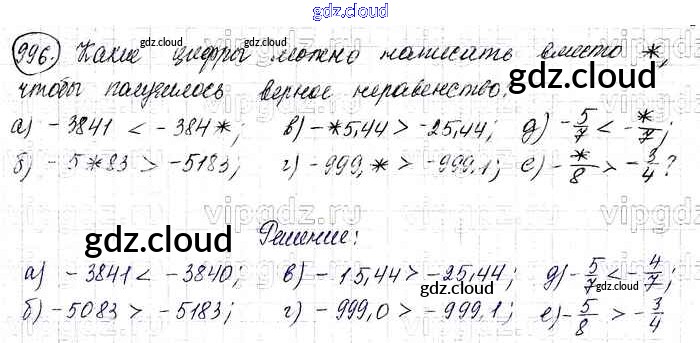 gdz.cloud
996. Какие цифры можно написать вместо *,
чтобы получилось верное неравенство:
а) -3841 < -384*; в) -*5,44 > -25,44; д) -5/7 < -*/7;
б) -5*83 > -5183; г) -999,* > -999,1; е) -*/8 > -3/4?
Решение:
а) -3841 < -3840; в) -15,44 > -25,44; д) -5/7 < -4/7;
б) -5083 > -5183; г) -999,0 > -999,1; е) -5/8 > -3/4
gdz.cloud
gdz.cloud
gdz.cloud
gdz.cloud
gdz.cloud
gdz.cloud
vipgdz.ru
vipgdz.ru
vipgdz.ru